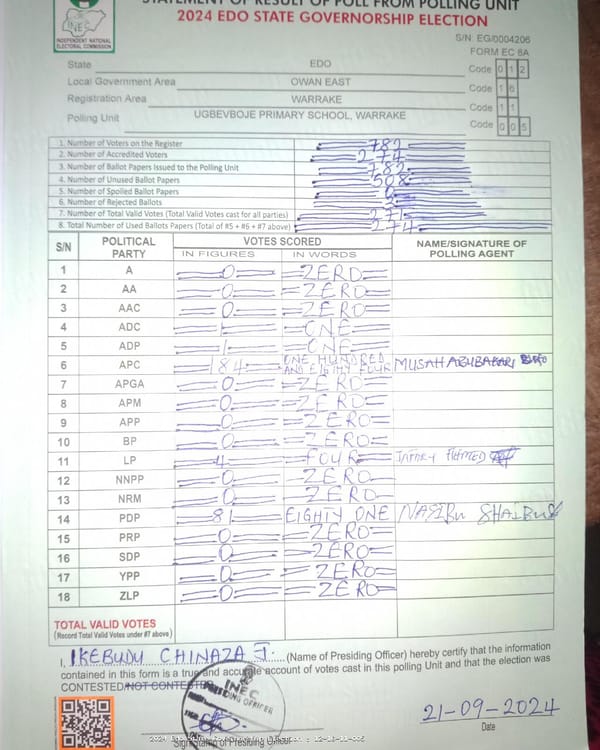 STATEMENT OF RESULT OF POLL FROM POLLING UNIT
2024 EDO STATE GOVERNORSHIP ELECTION
INEC
INDEPENDENT NATIONAL
ELECTORAL COMMISSION
S/N: EG/0004206
FORM EC 8A
State EDO Code 0 1 2
Local Government Area OWAN EAST Code 1 6
Registration Area WARRAKE Code 1 1
Polling Unit UGBEVBOJE PRIMARY SCHOOL, WARRAKE Code 0 0 5
1. Number of Voters on the Register 782
2. Number of Accredited Voters 274
3. Number of Ballot Papers Issued to the Polling Unit 782
4. Number of Unused Ballot Papers 508
5. Number of Spoiled Ballot Papers 0
6. Number of Rejected Ballots
7. Number of Total Valid Votes (Total Valid Votes cast for all parties) 271
8. Total Number of Used Ballots Papers (Total of #5 + #6 + #7 above) 274
S/N POLITICAL PARTY VOTES SCORED NAME/SIGNATURE OF POLLING AGENT
IN FIGURES IN WORDS
1 A 0 ZERO
2 AA 0 ZERO
3 AAC 0 ZERO
4 ADC 1 ONE
5 ADP 1 ONE
6 APC 184 ONE HUNDRED AND EIGHTY FOUR MUSAH ABUBAKARI
7 APGA 0 ZERO
8 APM 0 ZERO
9 APP 0 ZERO
10 BP 0 ZERO
11 LP 4 FOUR
12 NNPP 0 ZERO
13 NRM 0 ZERO
14 PDP 81 EIGHTY ONE NASIBU SHAIBU
15 PRP 0 ZERO
16 SDP 0 ZERO
17 YPP 0 ZERO
18 ZLP 0 ZERO
TOTAL VALID VOTES
(Record Total Valid Votes under #7 above)
I, IKEBUDU CHINAZA J. (Name of Presiding Officer) hereby certify that the information
contained in this form is a true and accurate account of votes cast in this polling Unit and that the election was
CONTESTED/NOT CONTESTED
INEC
PRESIDING OFFICER
21-09-2024
Date
Signature of Presiding Officer